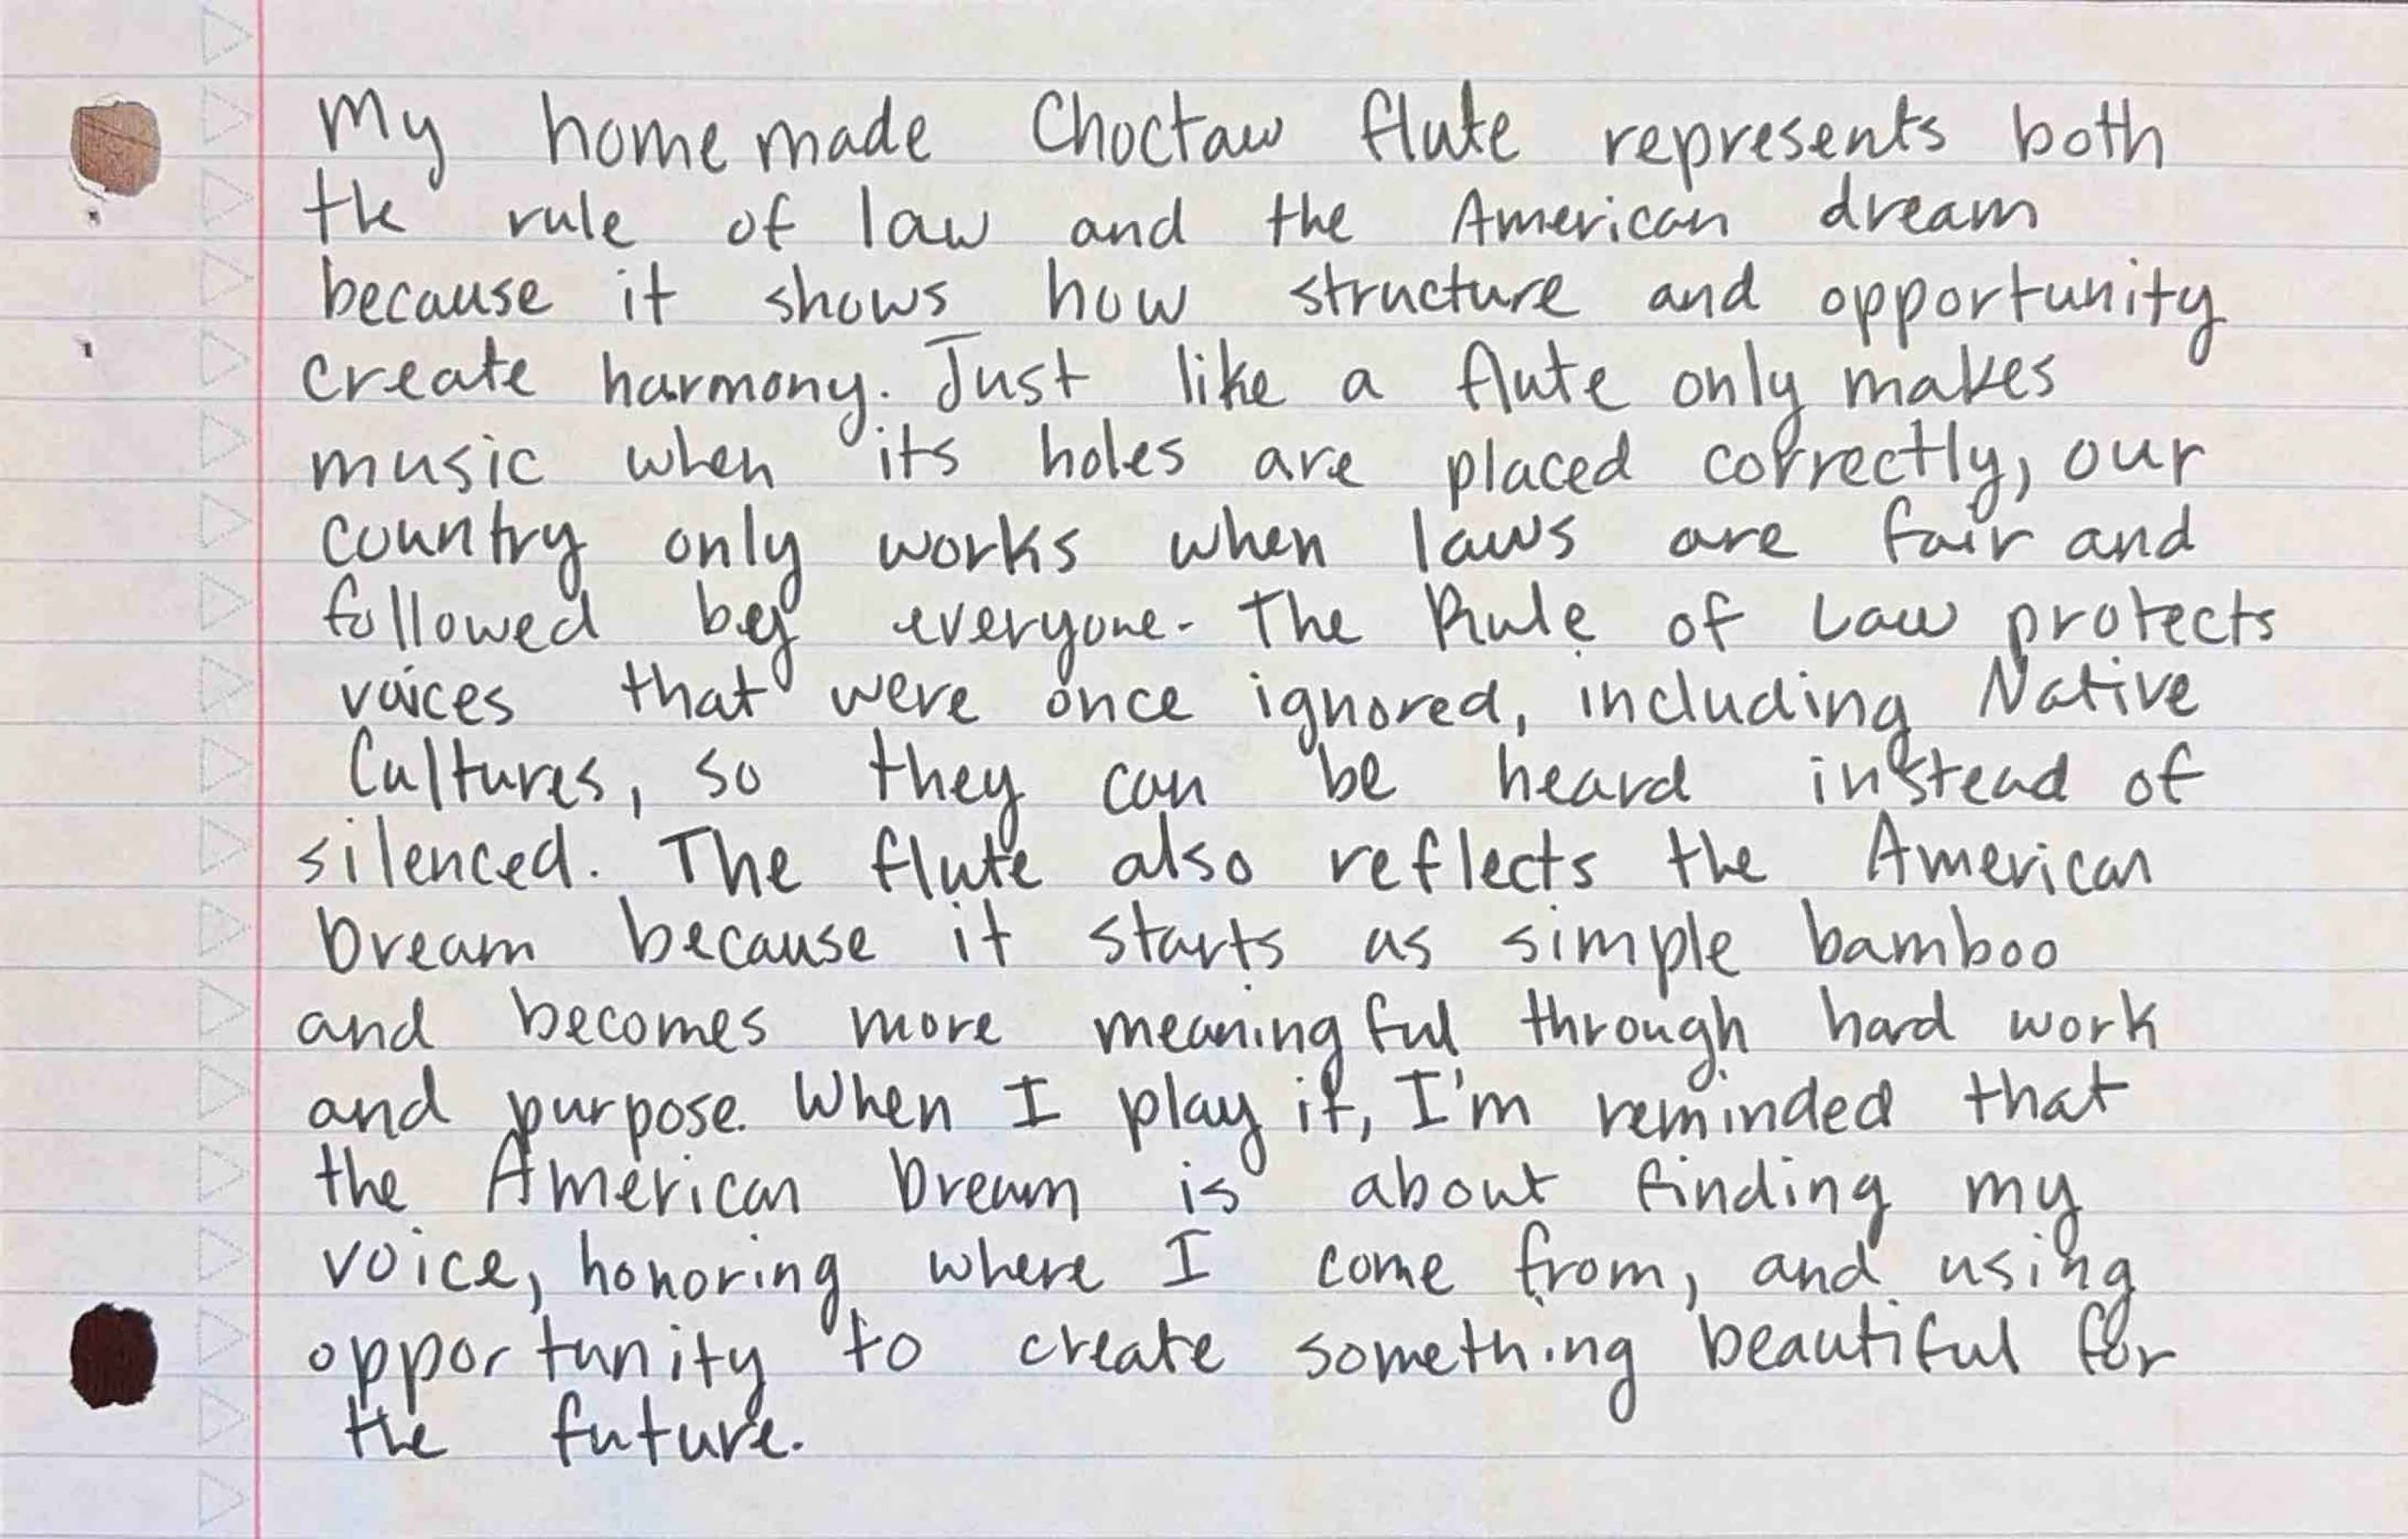 My homemade Choctaw flute represents both
the rule of law and the American dream
because it shows how structure and opportunity
create harmony. Just like a flute only makes
music when its holes are placed correctly, our
country only works when laws are fair and
followed by everyone. The Rule of Law protects
voices that were once ignored, including Native
Cultures, so they can be heard instead of
silenced. The flute also reflects the American
Dream because it starts as simple bamboo
and becomes more meaningful through hard work
and purpose. When I play it, I'm reminded that
the American Dream is about finding my
voice, honoring where I come from, and using
opportunity to create something beautiful for
the future.